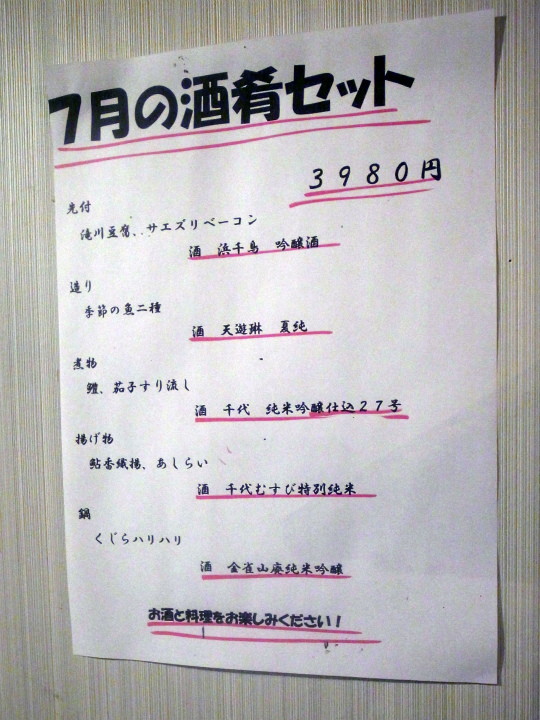 7月の酒肴セット
3980円
先付
滝川豆腐、、サエズリベーコン
酒 浜千鳥 吟醸酒
造り
季節の魚二種
酒 天遊琳 夏純
煮物
鱧、茄子すり流し
酒 千代 純米吟醸仕込27号
揚げ物
鮎香織揚、あしらい
酒 千代むすび特別純米
鍋
くじらハリハリ
酒 金雀山廃純米吟醸
お酒と料理をお楽しみください！